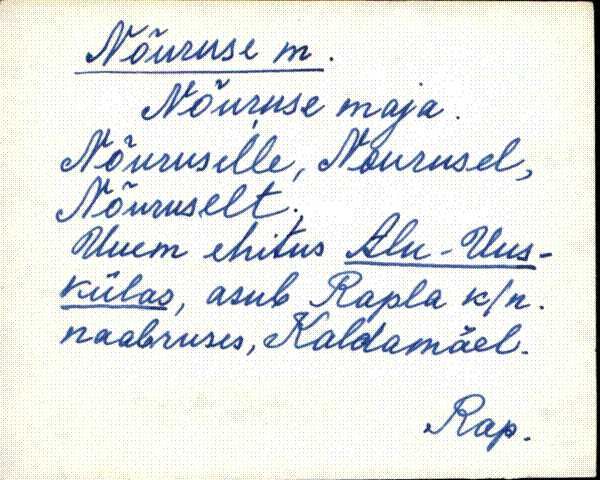 Nõuruse m.
Nõuruse maja.
Nõurusille, Nõurusel,
Nõuruselt.
Uuem ehitus Alu-Uus-
külas, asub Rapla k/n.
naabruses, Kaldamäel.
Rap.